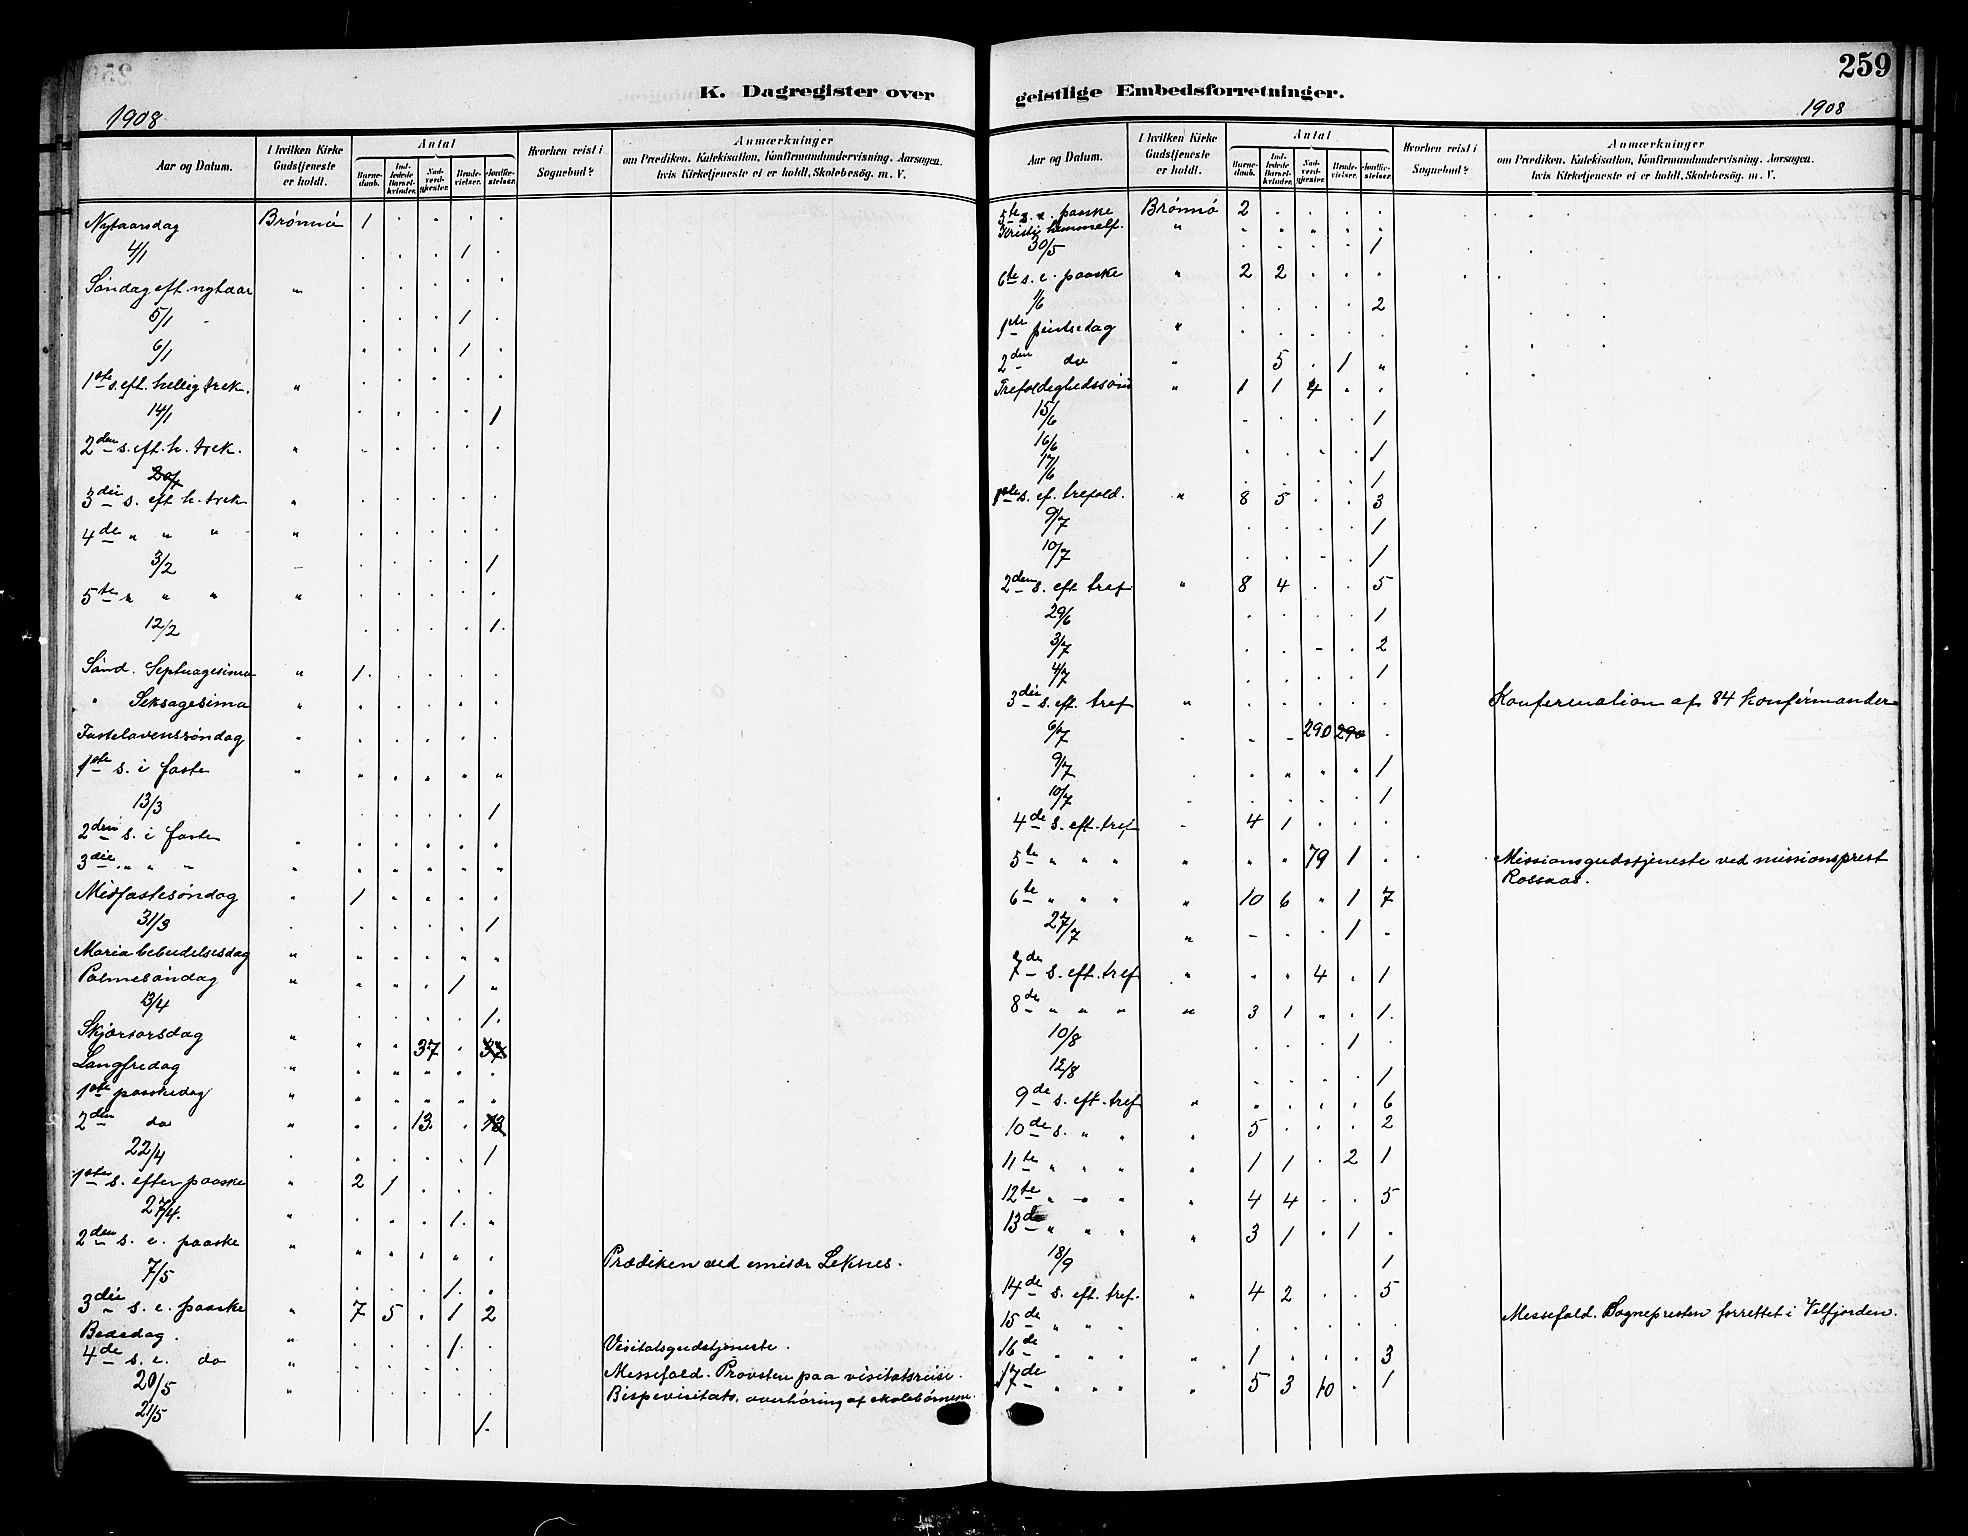 259
K. Dagregister over geistlige Embedsforretninger.
1908
Aar og Datum. | I hvilken Kirke Gudstjeneste er holdt. | Antal | Barnedaab. | Indledede Barselkvinder. | Nadverdgjester. | Brudevielser. | Jordfæstelser. | Hvorhen reist i Sognebud? | Anmærkninger om Prædiken, Katekisation, Konfirmandundervisning, Aarsagen, hvis Kirketjeneste ei er holdt, Skolebesög. m. V.
Nytaarsdag Brönnö 1 . . . .
4/1 . . . 1 .
Söndag eft. nytaar " . . . . .
5/1 . . . 1 .
6/1 . . . 1 .
1ste s. eft. hellig trek. " . . . . .
14/1 . . . . 1
2den s. eft. h. trek. " . . . . .
20/1
3die s. eft h. trek " . . . . .
4de " " " " . . . . .
3/2 – . . . . 1
5te " " " " . . . . .
12/2 . . . . 1.
Sönd. Septuagesima " 1. . . . .
" Seksagesima " . . . . .
Fastelavenssöndag " . . . . .
1ste s. i faste " " . " " "
13/3 . . . . 1
2den s. i faste " . . . . .
3die " " " " " " " " "
Midfastesöndag " 1 " " " .
31/3 . . . . 1
Maria bebudelsesdag " " . . " "
Palmesöndag " " " . 1 "
13/4 . . . . 1.
Skjærtorsdag " " . 37 . 37
Langfredag " . " " " .
1ste paaskedag " " " " " "
2den do " " . 13. . 13
22/4 . . . . . 1
1ste s. efter paaske " 2 1 . . .
27/4. " . . . 1. "
2den s. e. paaske " " " " " . Prædiken ved emisær Leknes.
7/5 . . . 1. .
3die s. e. paaske " 7 5 . 1 2
Bededag. " . . . 1. . Visitatsgudstjeneste.
4de s. e. do " . . . . . Messefald. Provsten paa visitatsreise.
20/5 " . . . . . Bispevisitats, overhöring af skolebörnene.
21/5 1.
1908
Aar og Datum. | I hvilken Kirke Gudstjeneste er holdt. | Antal | Barnedaab. | Indledede Barselkvinder. | Nadverdgjester. | Brudevielser. | Jordfæstelser. | Hvorhen reist i Sognebud? | Anmærkninger om Prædiken, Katekisation, Konfirmandundervisning, Aarsagen, hvis Kirketjeneste ei er holdt, Skolebesög. m. V.
5te s. e. paaske Brönnö 2 . . . .
Kristi himmelf. " " " " " "
30/5 . . . . 1
6te s. e. paaske " 2 2 . . .
1/6 . . . . 2
1ste pintsedag " . . . . .
2den do " 5 . 1 "
Trefoldighedssönd " 1 1 4 . .
15/6 - . . . 1
16/6 . . . . 1
17/6 . . . . 1
1ste s. ef. trefold. " 8 5 . . 3
9/7 . . . . 1
10/7 . . . . 1
2den s. eft tref " 8 4 . . 5
29/6 . . . . 1
3/7 . . - . 2
4/7 . . . . 1
3die s. eft. tref " . . . . . Konfirmation af 84 konfirmander
6/7 . - - 290 290 .
9/7 . . " " " 1
10/7 . . . . . 1
4de s. eft. tref - 4 1 . . .
5te " " " " " " 79 1 . Missionsgudstjeneste ved missionsprest Rossaas.
6te " " " " 10 6 " 1 7
27/7 " - . . 1 -
7de s. eft. tref " " " 4 . 1
8de " " " " 3 1 " . 1.
10/8 . . . 1 .
12/8 . . . . 1
9de s. eft. tref " " . . . 6
10de s. " " " 5 . . . 2
11te " " " " 1 1 . 2 1
12te " " " " 4 4 . . 5
13de " " " " 3 1 . 1 .
18/9 1
14de s. eft. tref. " 4 2 . . 5
15de " " " . . . . . Messefald. Sognepresten forrettet i Velfjorden.
16de " " " " 1 . . . 3
17de " " " " 5 3 10 . 1